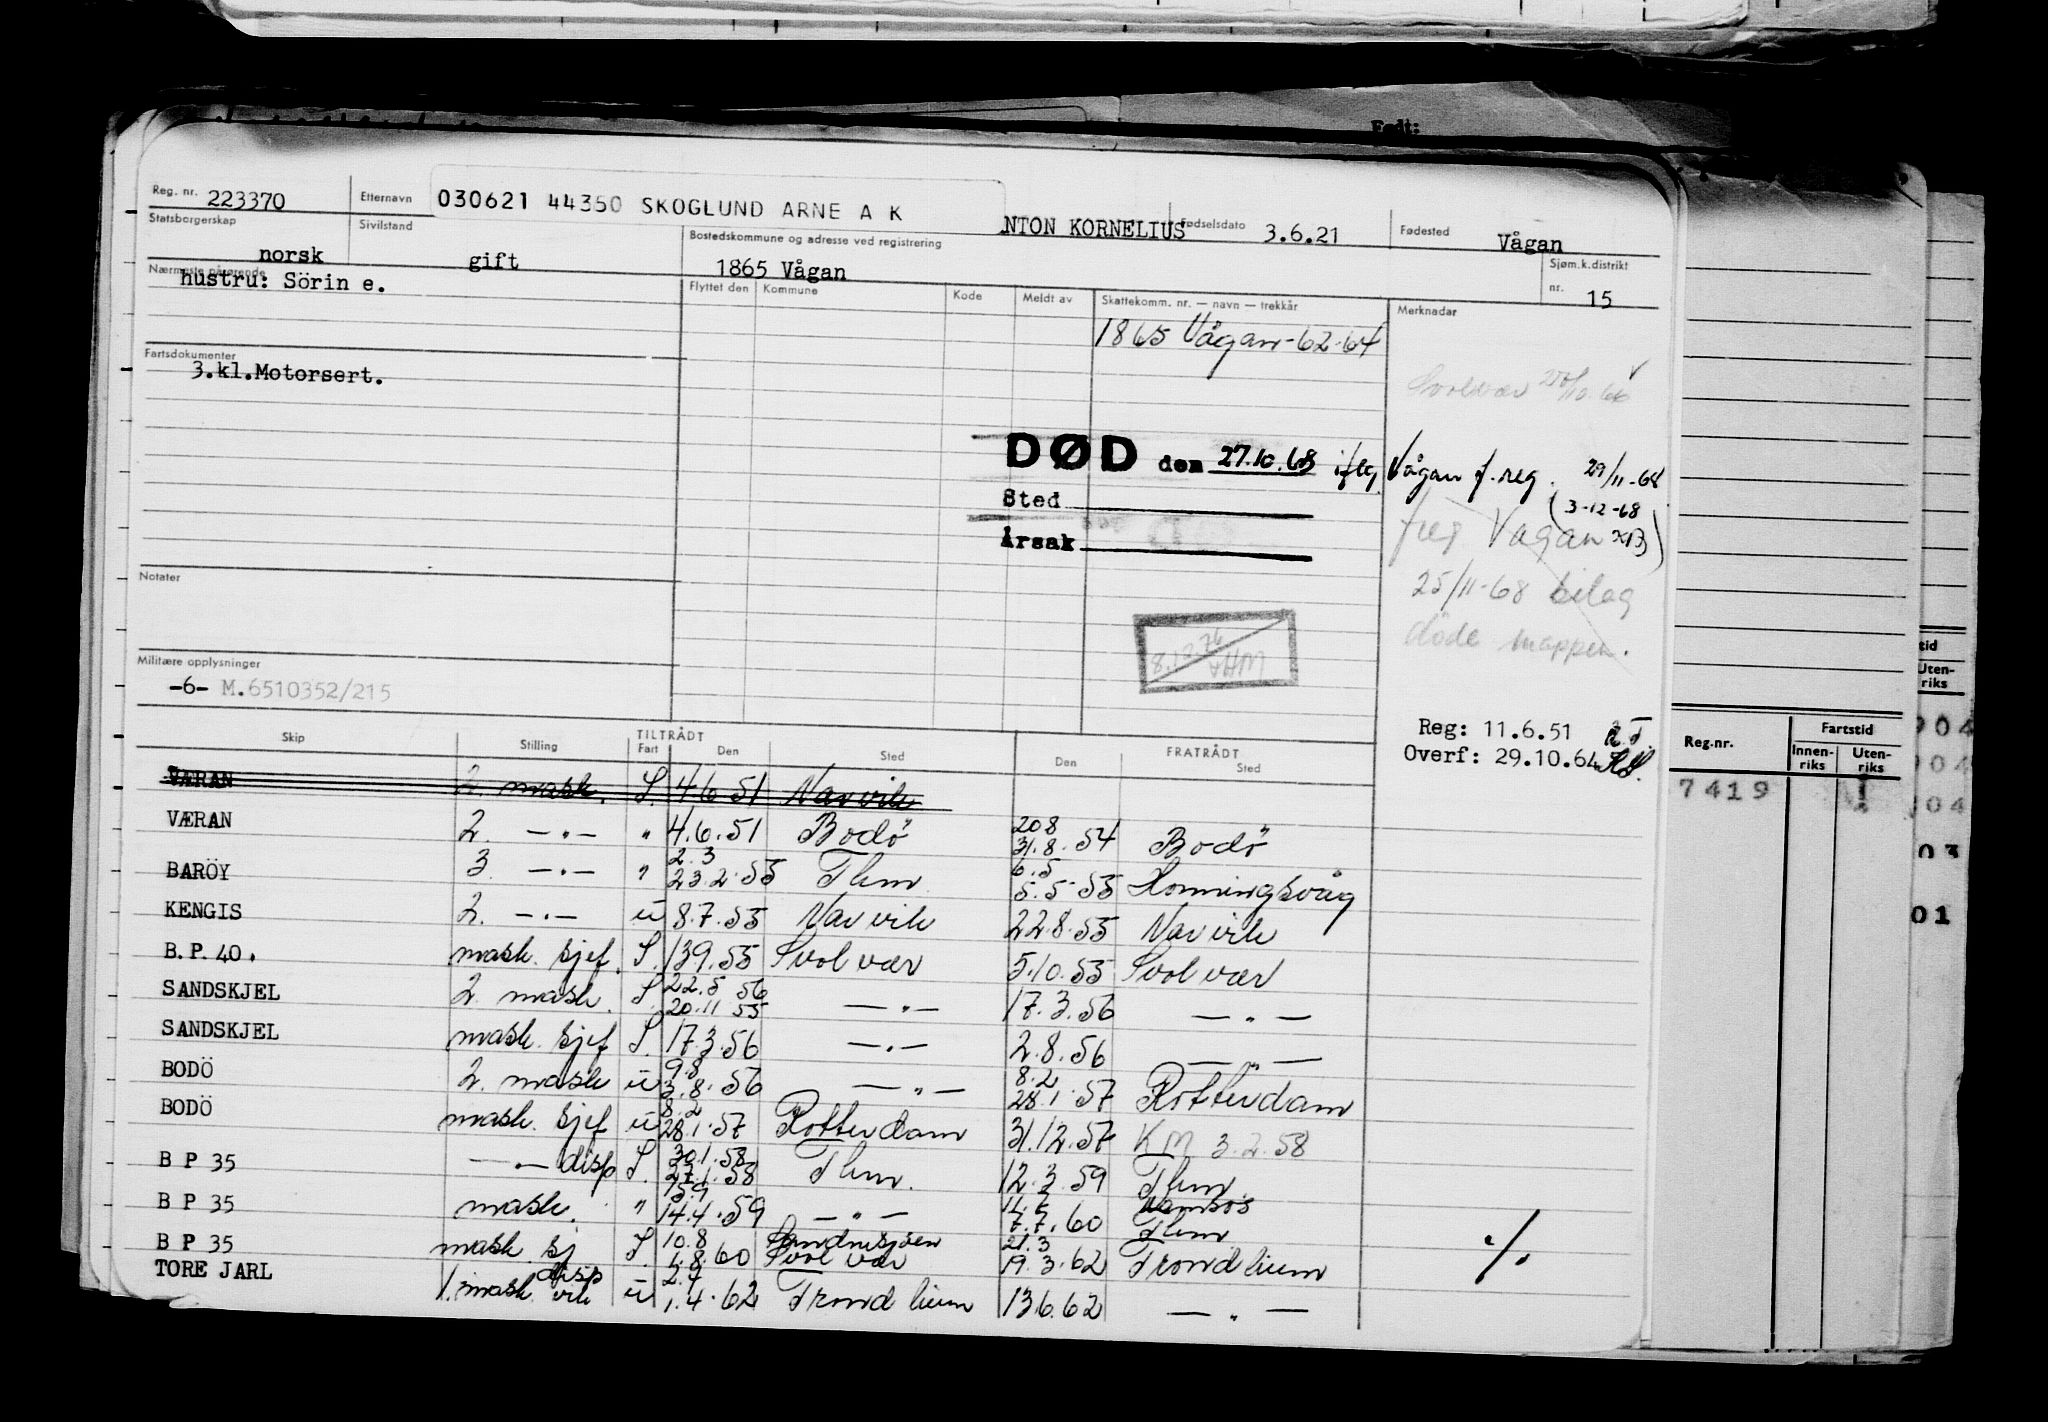 Født:
Reg. nr. 223370 Etternavn 030621 44350 SKOGLUND ARNE A K NTON KORNELIUS Fødselsdato 3.6.21 Fødested Vågan
Statsborgerskap norsk Sivilstand gift Bostedskommune og adresse ved registrering 1865 Vågan Sjøm.k.distrikt nr. 15
Nærmeste pårørende hustru: Sörin e.
Flyttet den Kommune Kode Meldt av Skattekomm. nr. — navn — trekkår Merknadar
1865 Vågan-62-64
Fartsdokumenter
3.kl.Motorsert.
Svolvær 25/10.66
DØD den 27.10.68 iflg. Vågan f.reg. 29/11-68
Sted
(3-12-68
Årsak
freg Vågan
25/11-68 bilag
døde mappen.
Notater
8.12.76
AHM
Militære opplysninger
-6- M.6510352/215
Reg: 11.6.51
Overf: 29.10.64
TILTRÅDT FRATRÅDT
Skip Stilling Fart Den Sted Den Sted
VÆRAN 2. mask. S. 4.6.51 Narvik
VÆRAN 2. —"— " 4.6.51 Bodö 20 8 31.8.54 Bodö
BARÖY 3. —"— " 2.3 23.2.55 Thm 6.5 5.5.55 Honningsvåg
KENGIS 2. —"— u 8.7.55 Narvik 22.8.55 Narvik
B.P. 40. mask. sjef. S. 13.9.55 Svolvær 5.10.55 Svolvær
SANDSKJEL 2. mask. S. 22.5 56 20.11 55 —"— 17.3.56 —"—
SANDSKJEL mask. sjef S. 17.3.56 —"— 2.8.56 —"—
BODÖ 2. mask u 9.8 3.8.56 —"— 8.2 28.1.57 Rotterdam
BODÖ mask. sjef u 8.2 28.1.57 Rotterdam 31.12.57 KM 3.2.58
B P 35 —"— disp S. 30.1.58 27.1.58 Thm. 12.3.59 Thm
B P 35 mask. " 15.9 14.4.59 —"— 11.7 7.7.60 Namsos Thm
B P 35 mask. sj disp S. 10.8 1.8.60 Sandnesjöen Svolvær 21.3 19.3.62 Trondheim
TORE JARL 1. mask vik u 2.4 1.4.62 Trondheim 13.6.62 —"—
./.
Reg.nr. Fartstid
Innen-riks Uten-riks
7419 1
tid
Uten-
riks
904
904
04
03
01